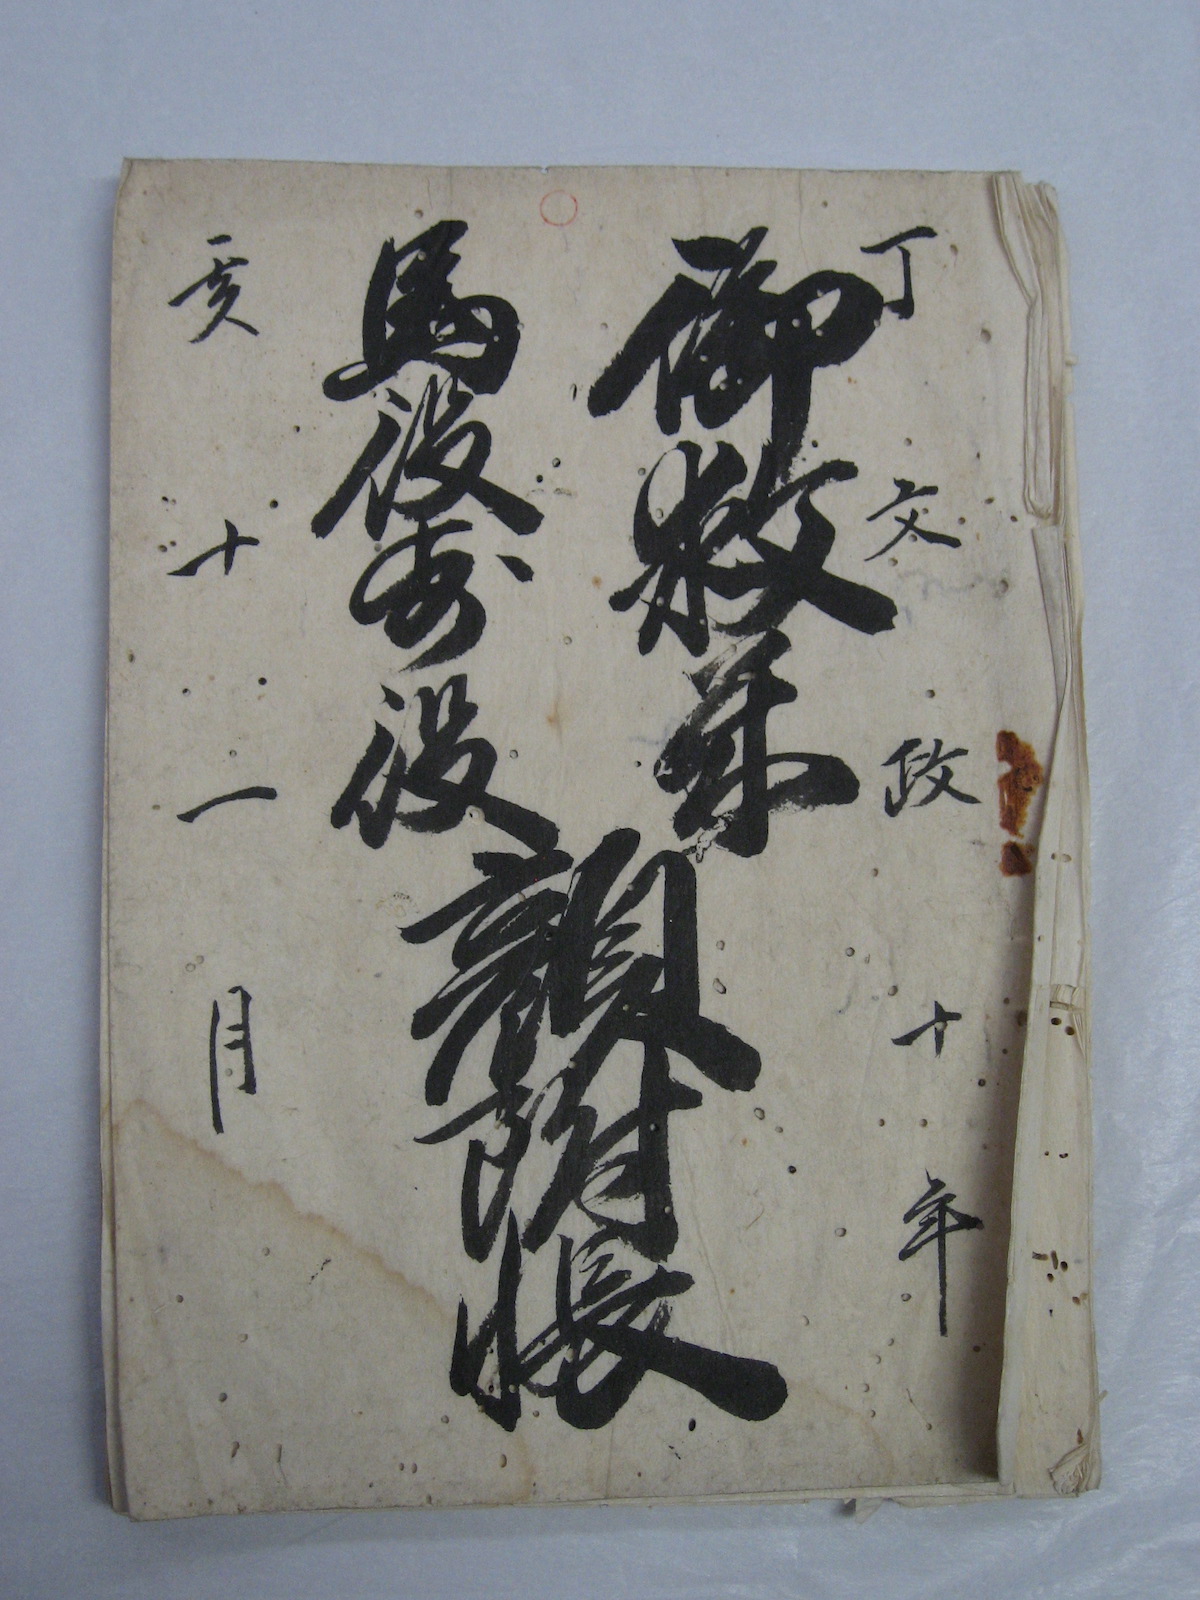 丁文政十年
御救米
馬役歩役
調附帳
亥十一月